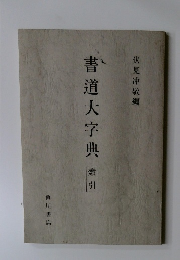 伏見冲敬編
書道大字典
索引
角川書店